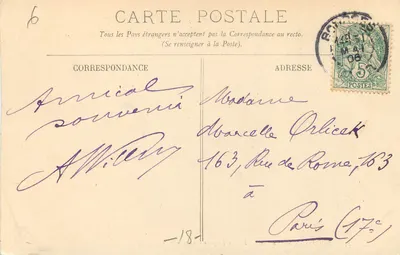 6
CARTE POSTALE
Tous les Pays étrangers n'acceptent pas la Correspondance au recto.
(Se renseigner à la Poste).
CORRESPONDANCE
ADRESSE
Amical
souvenir
Madame
Marcelle Orlicek
163, Rue de Rome, 163
à
Paris (17e)
-18-
POSTES